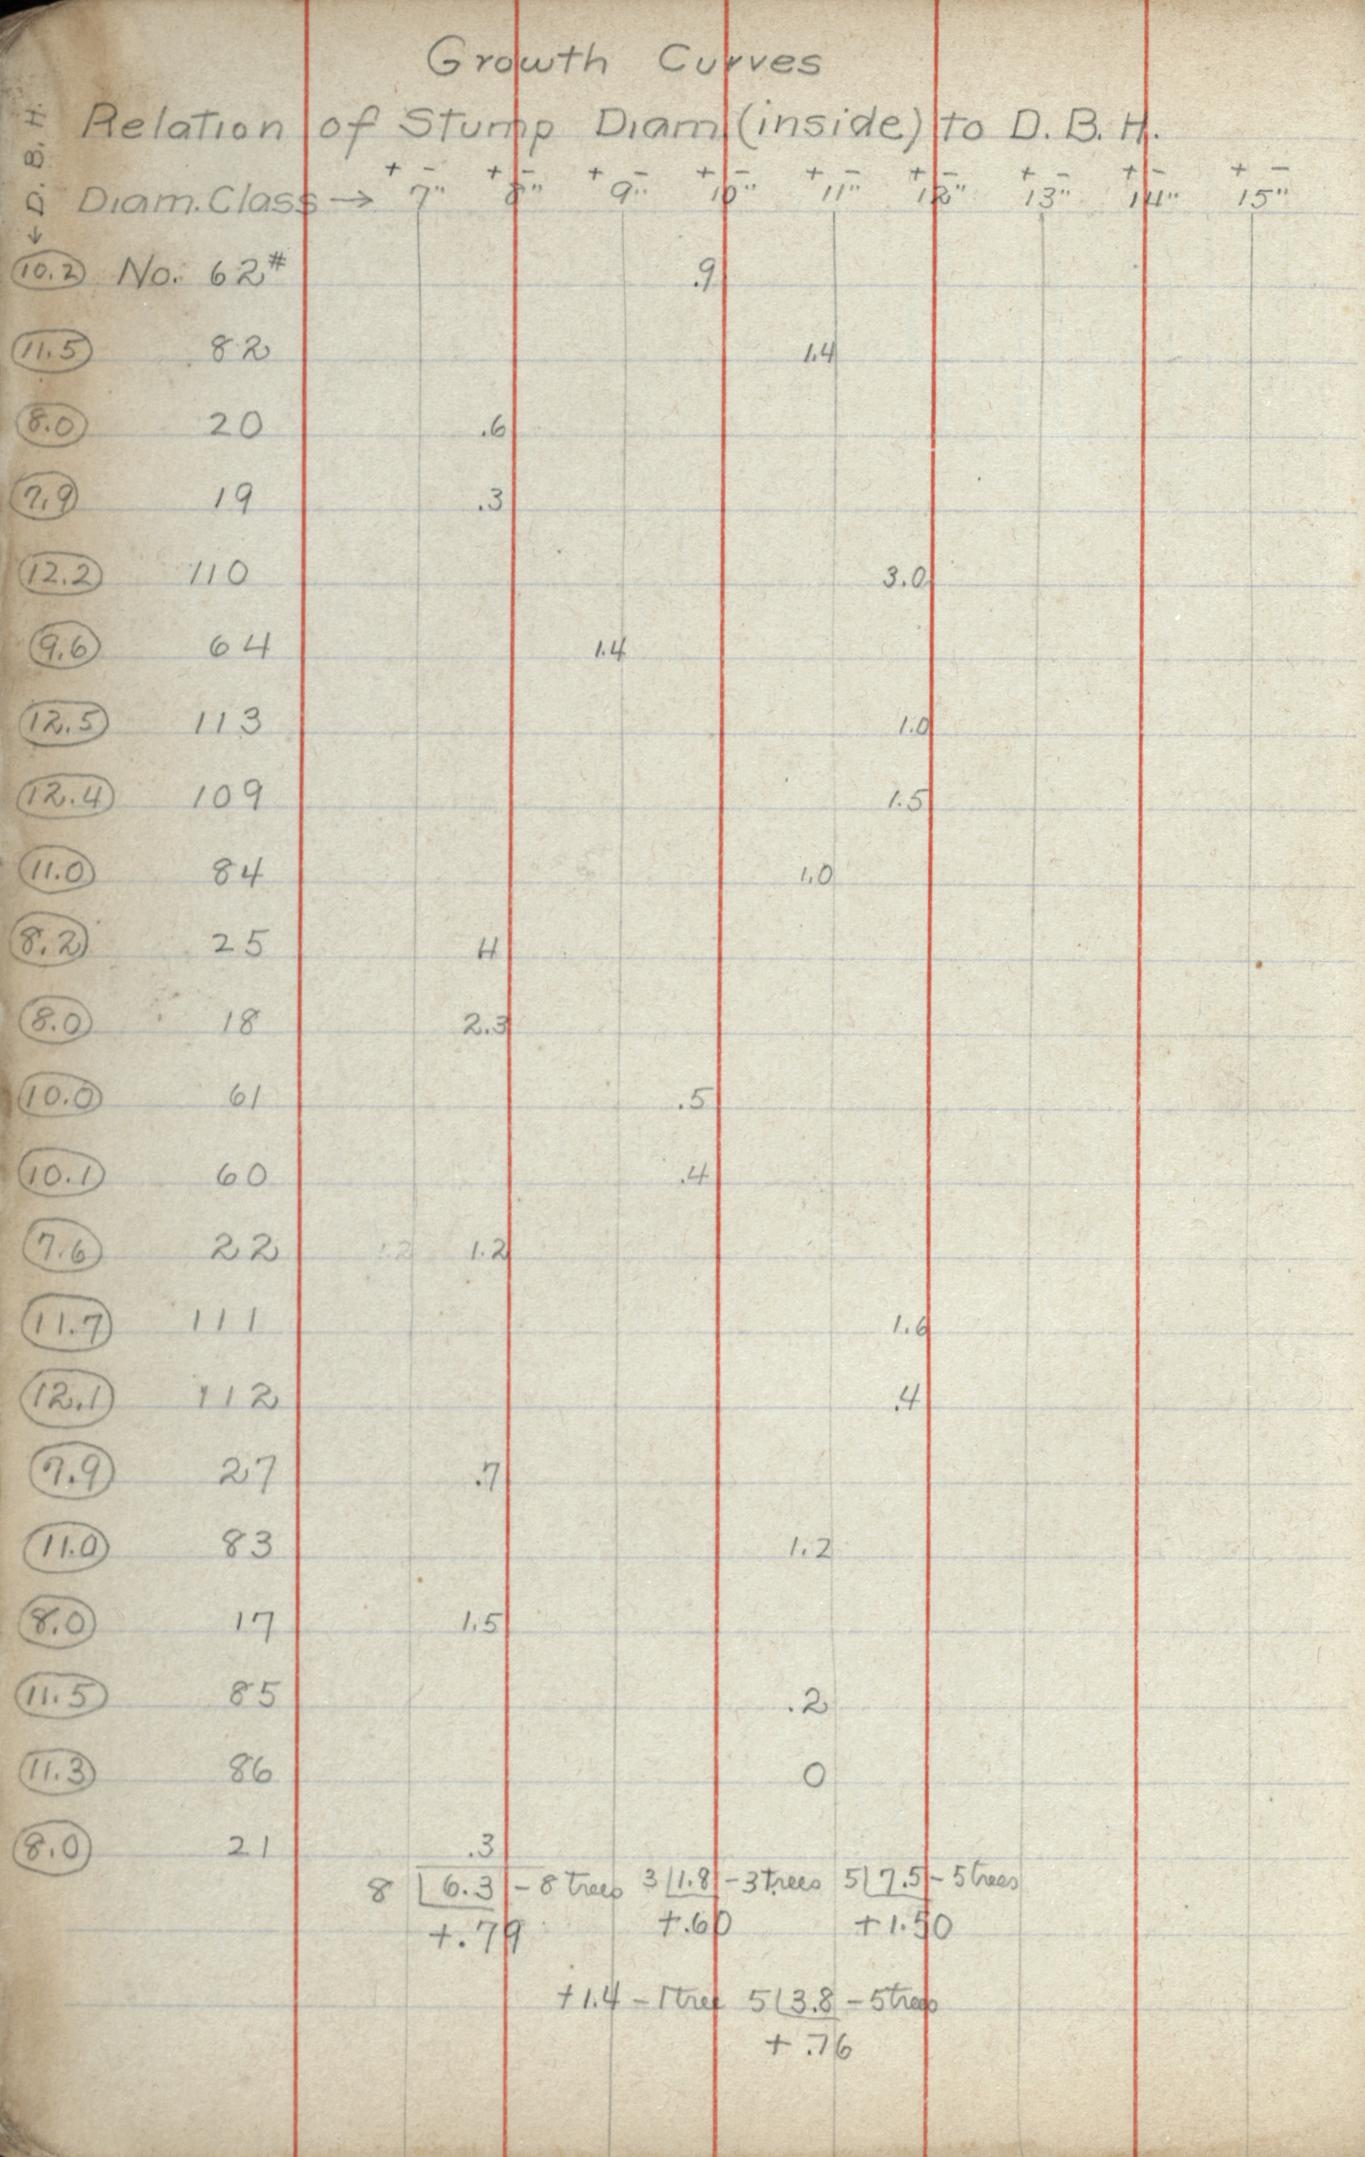 Growth Curves
Relation of Stump Diam (inside) to D.B.H.
← D.B.H.
+ - + - + - + - + - + - + - + - + -
Diam. Class → 7" 8" 9" 10" 11" 12" 13" 14" 15"
10.2 No. 62# .9
11.5 82 1.4
8.0 20 .6
7.9 19 .3
12.2 110 3.0
9.6 64 1.4
12.5 113 1.0
12.4 109 1.5
11.0 84 1.0
8.2 25
8.0 18 2.3
10.0 61 .5
10.1 60 .4
7.6 22 1.2 1.2
11.7 111 1.6
12.1 112 .4
7.9 27 .7
11.0 83 1.2
8.0 17 1.5
11.5 85 .2
11.3 86 0
8.0 21 .3
8 6.3 - 8 trees 3 1.8 - 3 trees 5 7.5 - 5 trees
+.79 +.60 +1.50
+1.4 - 1 tree 5 3.8 - 5 trees
+.76